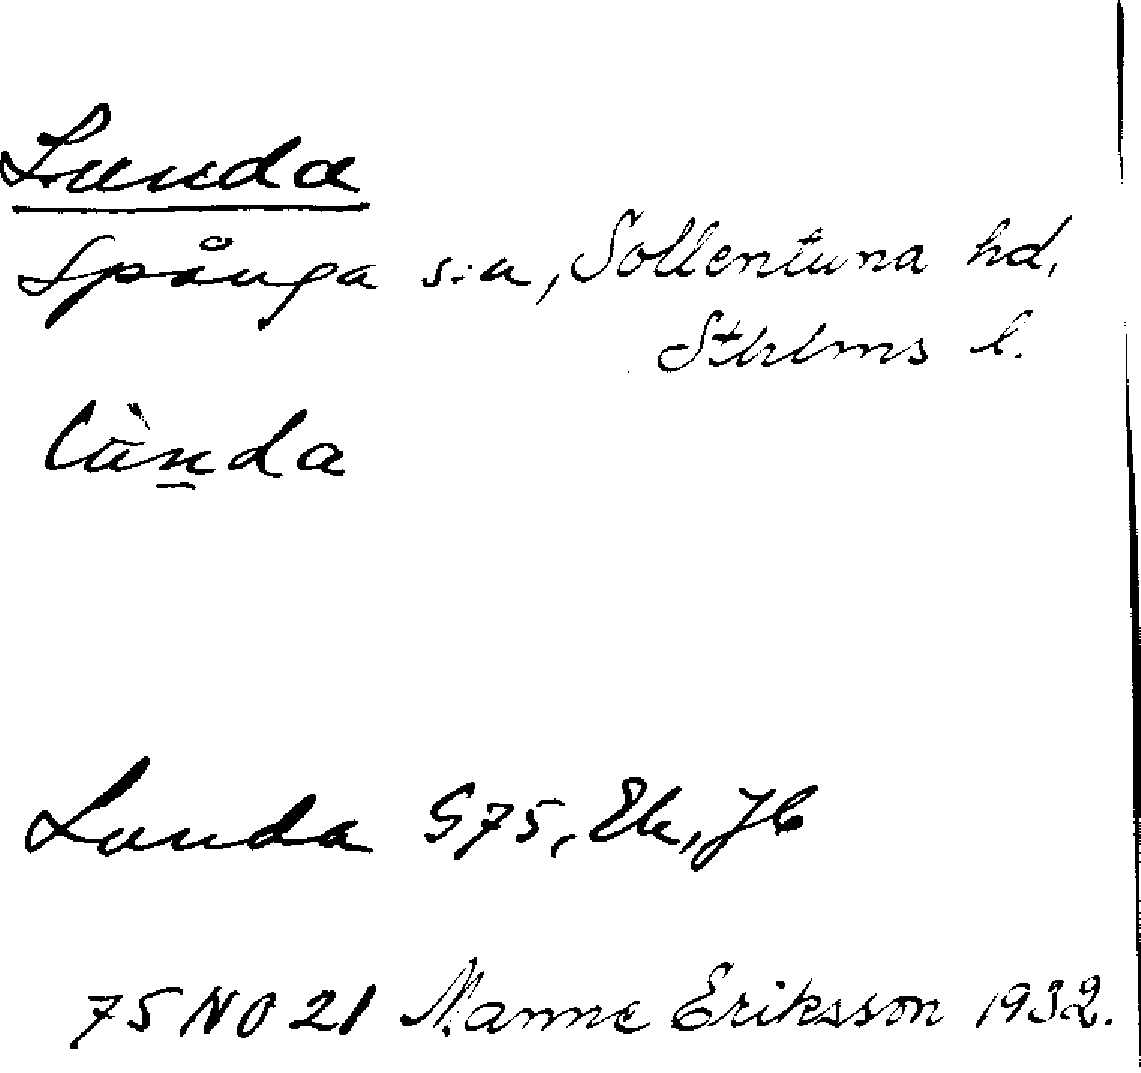 Lunda
Spånga s:a, Sollentuna hd,
Sthlms l.
lùn̲da
Lunda G75, Ek, Jb
75 NO 21 Manne Eriksson 1932.